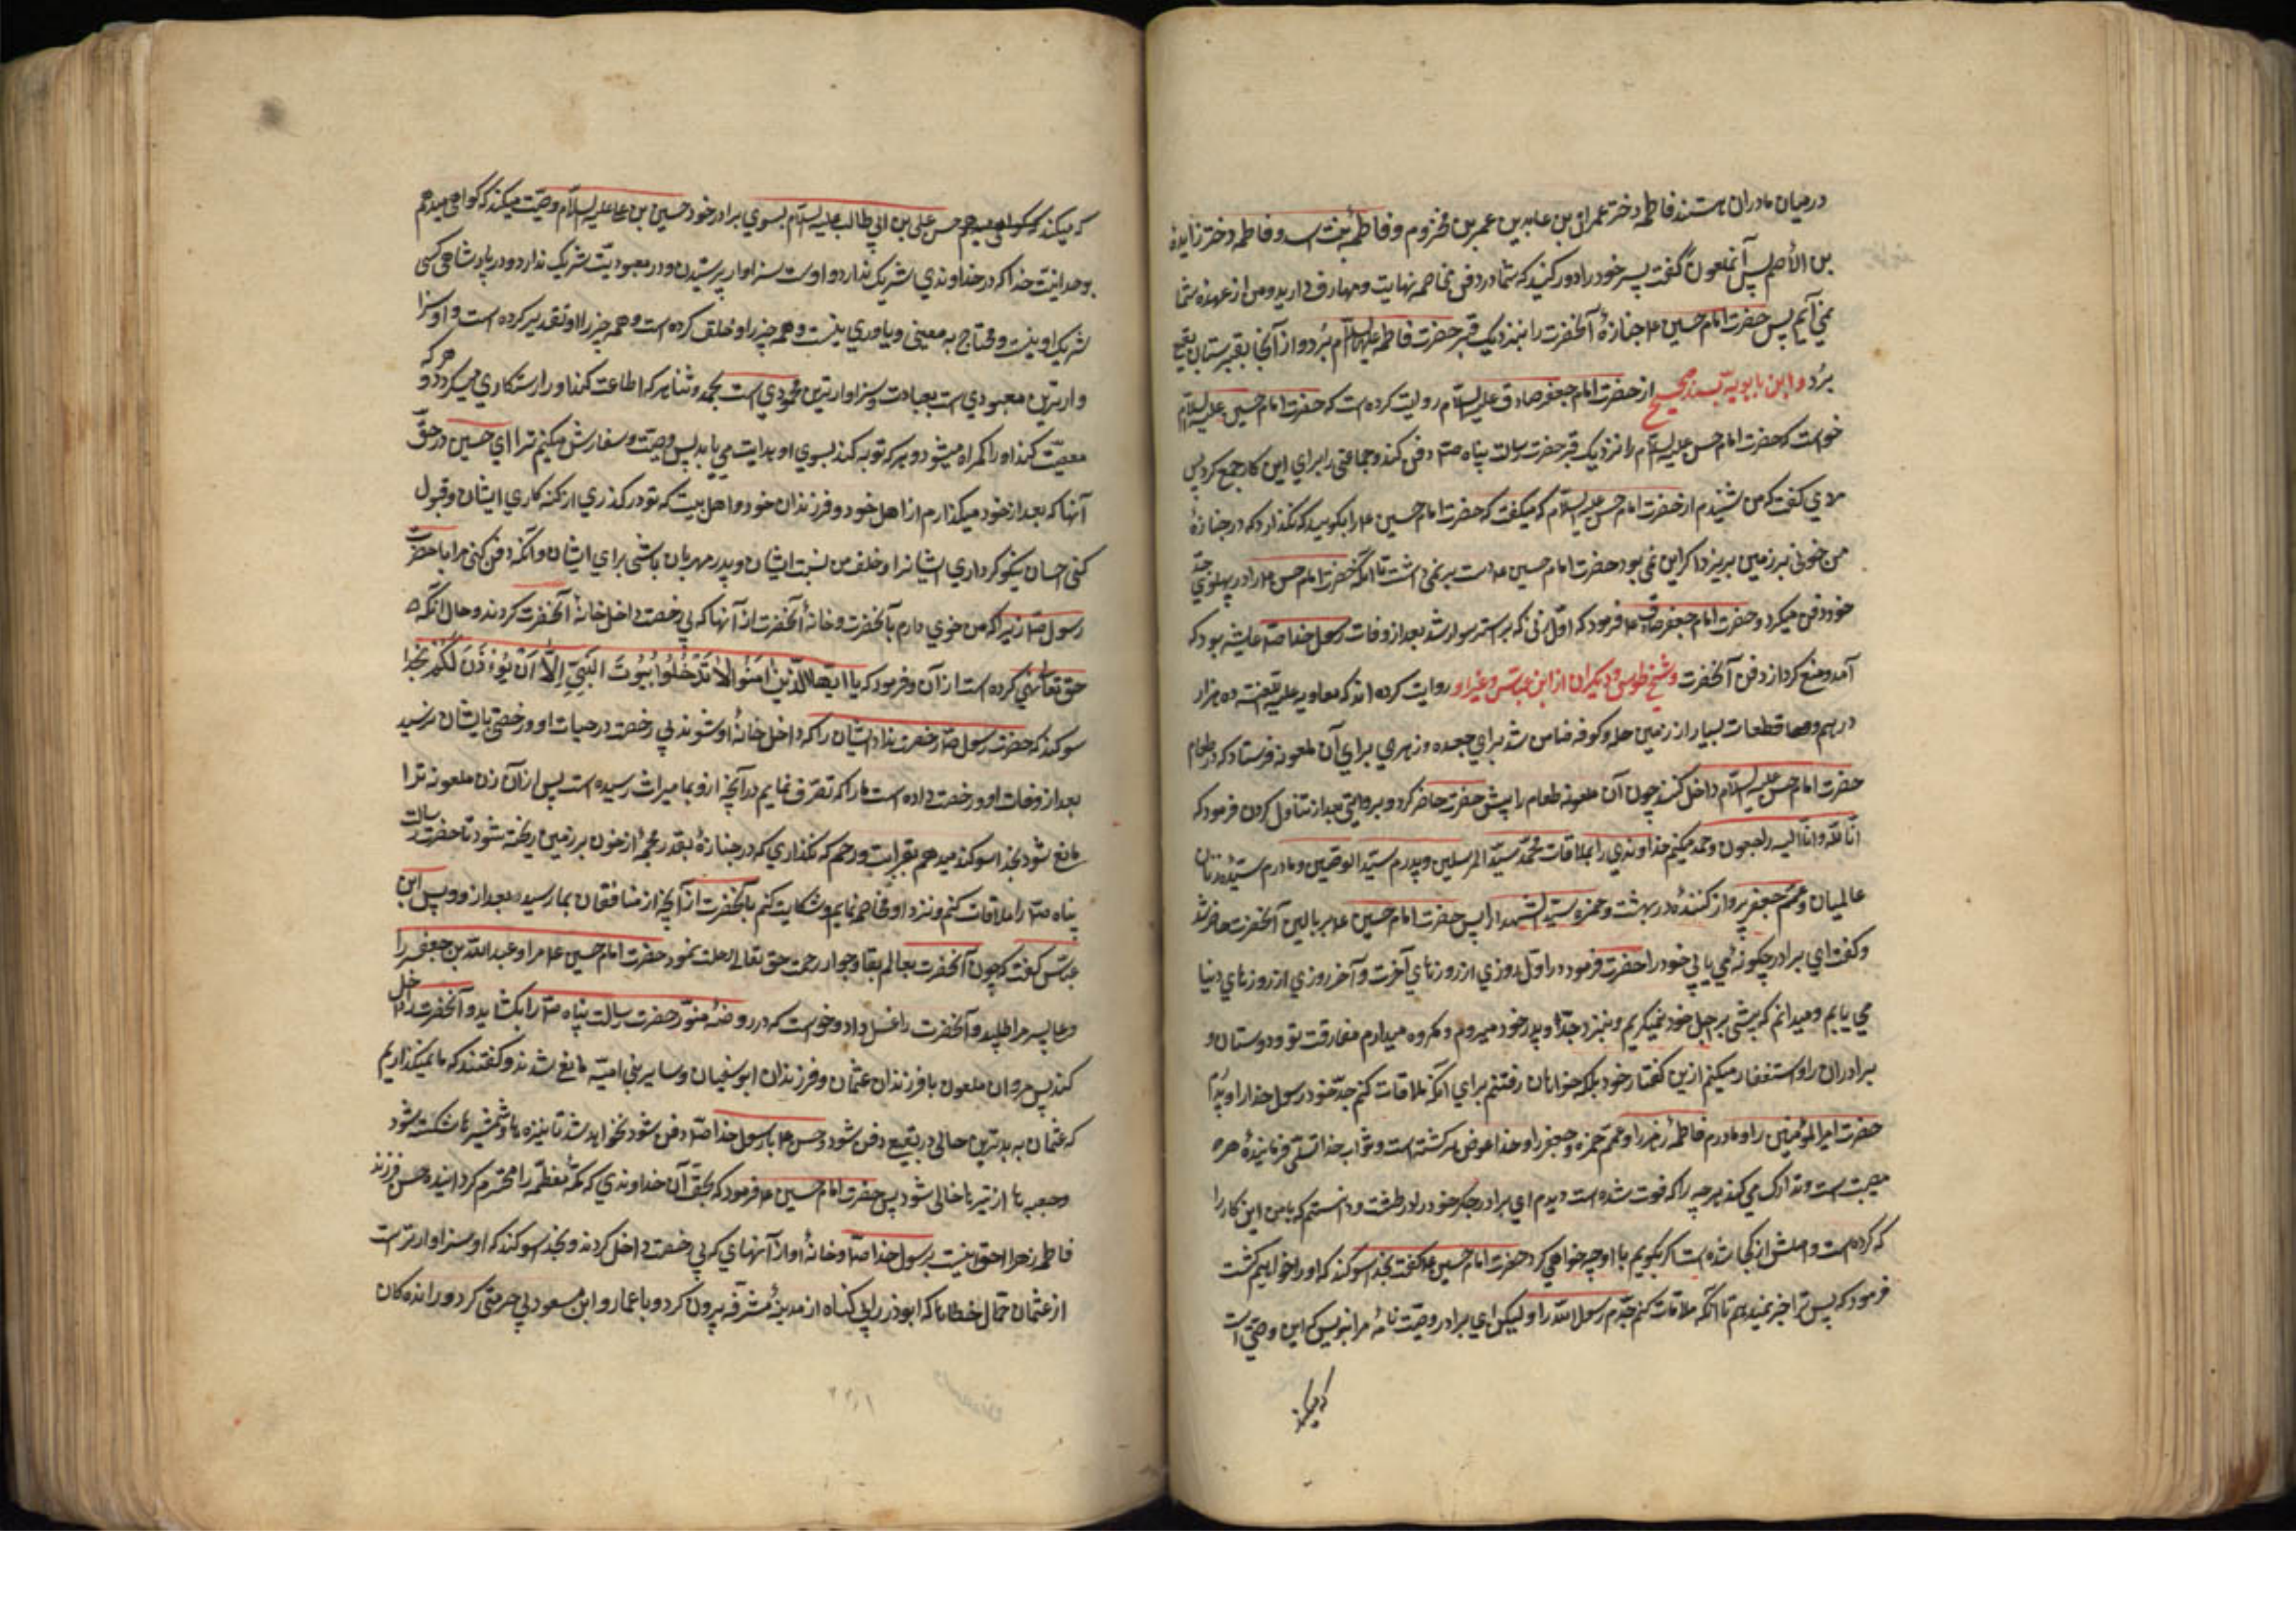 در میان مادران هستند فاطمه دختر عمران بن عابد بن عمر بن مخزوم و فاطمه بنت اسد و فاطمه دختر زایدهٔ
بن الأصم پس آنملعون گفت پسر خود را دور کنید که شما در دفن مخاصمه نهایت و مهارت دارید و من از عهدهٔ شما
نمی آیم پس حضرت امام حسین ع جنازهٔ آنحضرت را بنزدیک قبر حضرت فاطمه علیها السلام برد و از آنجا بقبرستان بقیع
برد و ابن بابویه بسند صحیح از حضرت امام جعفر صادق علیه السلام روایت کرده است که حضرت امام حسین علیه السلام
خواست که حضرت امام حسن علیه السلام را نزدیک قبر حضرت رسالت پناه صلّ دفن کند و جماعتی را برای این کار جمع کرد پس
مردی گفت که من شنیدم از حضرت امام حسن علیه السلام که میگفت که حضرت امام حسین ع را بگویید که نگذارد که در جنازهٔ
من خونی بر زمین بریزد اگر این نمی بود حضرت امام حسین ع دست بر نمی داشت تا آنکه حضرت امام حسن ع را در پهلوی جدّ
خود دفن میکرد و حضرت امام جعفر صادق ع فرمود که اوّل زنی که بر استر سوار شد بعد از وفات رسول خدا صلّ عایشه بود که
آمد و منع کرد از دفن آنحضرت و شیخ طوسی و دیگران از ابن عباس و غیر او روایت کرده اند که معاویه علیه اللعنه ده هزار
درهم و قطعات بسیار از زمین حله و کوفه ضامن شد برای جعده و زهری برای آن ملعونه فرستاد که در طعام
حضرت امام حسن علیه السلام داخل کند چون آن ملعونه طعام را پیش حضرت حاضر کرد و بروایتی بعد از تناول کردن فرمود که
انّا للّه وانّا الیه راجعون و حمد میکنم خداوندی را بملاقات محمّد سیّد المرسلین و پدرم سیّد الوصیین و مادرم سیّدهٔ زنان
عالمیان و عمّم جعفر پرواز کنندهٔ در بهشت و حمزه سیّد الشهدا را پس حضرت امام حسین ع بر بالین آنحضرت حاضر شد
و گفت ای برادر چگونه می یابی خود را حضرت فرمود در اوّل روزی از روزهای آخرت و آخر روزی از روزهای دنیا
می یابم و میدانم که پیشی بر اجل خود نمیگیرم و بنزد جدّ و پدر خود میروم و مکروه میدارم مفارقت تو و دوستان و
برادران را و استغفار میکنم ازین گفتار خود بلکه خواهان رفتنم برای آنکه ملاقات کنم جدّ خود رسول خدا را و پدرم
حضرت امیرالمؤمنین را و مادرم فاطمهٔ زهرا را و عمّم حمزه و جعفر را و خدا عوض هر گذشته است و ثواب خدا تسلّی فرمایندهٔ هر
مصیبت است و تدارک می کند هر چه را که فوت شده است دیدم ای برادر جگر خود را در طشت و دانستم که با من این کار را
که کرده است و اصلش از کجا شده است اگر بگویم با او چه خواهی کرد حضرت امام حسین ع گفت بخدا سوگند که او را خواهیم کشت
فرمود که پس ترا خبر نمیدهم تا آنکه ملاقات کنم جدّم رسول اللّه را ولیکن ای برادر وصیّت نامهٔ مرا بنویس که این وصیّتی است
که میکند
که میکند حسن علی بن ابی طالب علیه السلام بسوی برادر خود حسین بن علی علیه السلام وصیّت میکند که گواهی میدهم
بوحدانیّت خدا که در خداوندی شریک ندارد و اوست سزاوار پرستیدن و در معبودیّت شریک ندارد و در پادشاهی کسی
شریک او نیست و محتاج به معینی و یاوری نیست و همه چیز را او خلق کرده است و همه چیز را او تقدیر کرده است و او سزا
وارترین معبودی است بعبادت و سزاوارترین محمودی است بحمد و ثنا هر که اطاعت کند او را رستگاری میگردد و هر که
معصیّت کند او را گمراه میشود و هر که توبه کند بسوی او هدایت می یابد پس وصیّت و سفارش میکنم ترا ای حسین در حقّ
آنها که بعد از خود میگذارم از اهل خود و فرزندان خود و اهل بیت که تو در گذری از گنه کاری ایشان و قبول
کنی احسان نیکو کرداری ایشانرا و خلف من نسبت ایشان و پدر مهربان باشی برای ایشان و آنکه دفن کنی مرا با حضرت
رسول صلّ زیرا که من خوی دارم بآنحضرت و خانهٔ آنحضرت از آنها که بی رخصت داخل خانهٔ آنحضرت کردند و حال آنکه
حق تعالی نهی کرده است از آن و فرمود که یا ایّها الّذین آمَنُوا لا تَدْخُلُوا بُیُوتَ النَّبِیِّ اِلّا اَنْ یُؤْذَنَ لَکُمْ بخدا
سوگند که حضرت رسول صلّ رخصت نداد ایشان را که داخل خانهٔ او شوند بی رخصت در حیات او و رخصتی بایشان نرسید
بعد از وفات او و رخصت داده است ما را که تصرّف نمایم در آنچه ازو بما میراث رسیده است پس از آن زن ملعونه ترا
مانع شود بخدا سوگند میدهم بقرابت و رحم که نگذاری که در جنازهٔ بقدر محجمهٔ از خون بر زمین ریخته شود تا حضرت رسالت
پناه صلّ را ملاقات کنم و نزد او مخاصمه نمایم و شکایت کنم بآنحضرت از آنچه از منافقان بما رسیده بعد از و پس ابن
عبّاس گفت که چون آنحضرت بعالم بقا و جوار رحمت حق تعالی رحلت نمود حضرت امام حسین ع مرا و عبد اللّه بن جعفر را
و علی پسر مرا طلبید و آنحضرت را غسل داد و خواست که در روضهٔ منوّر حضرت رسالت پناه صلّ را بگشاید و آنحضرت را داخل
کند پس مروان ملعون با فرزندان عثمان و فرزندان ابوسفیان و سایر بنی امیّه مانع شدند و گفتند که ما نمیگذاریم
که عثمان به بدترین حالی در بقیع دفن شود و حسن ع با رسول خدا صلّ دفن شود نخواهد شد تا نیزه ها و شمشیرها شکسته شود
و جعبه ها از تیرها خالی شود پس حضرت امام حسین ع فرمود که بحقّ آن خداوندی که مکّهٔ معظّمه را محترم گردانیده حسن فرزند
فاطمه زهرا احق است برسول خدا صلّ و خانهٔ او از آنهای که بی رخصت داخل کردند و بخدا سوگند که او سزاوارتر است
از عثمان حمّال خطاها که ابوذر را بی گناه از مدینهٔ مشرّفه بیرون کرد و با عمار و ابن مسعود بی حرمتی کرد و رانده گان